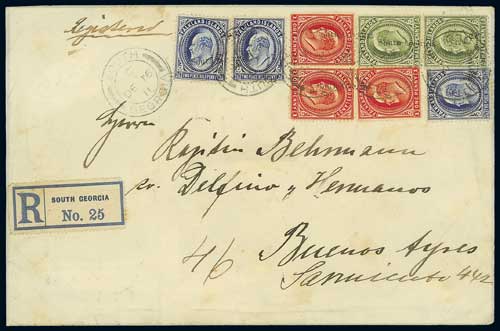 Registered
FALKLAND ISLANDS FALKLAND ISLANDS
SOUTH GEORGIA
Herrn
Kapitän Behrmann
Delfino y Hermanos
46 Buenos Ayres
Sarmiento 442
R SOUTH GEORGIA
No. 25